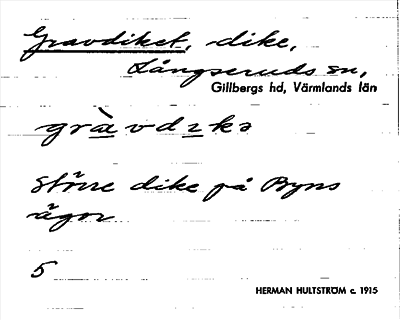 Gravdiket, dike,
Långseruds sn,
Gillbergs hd, Värmlands län
gràvdıkə
större dike på Byns
ägor
5
HERMAN HULTSTRÖM c. 1915